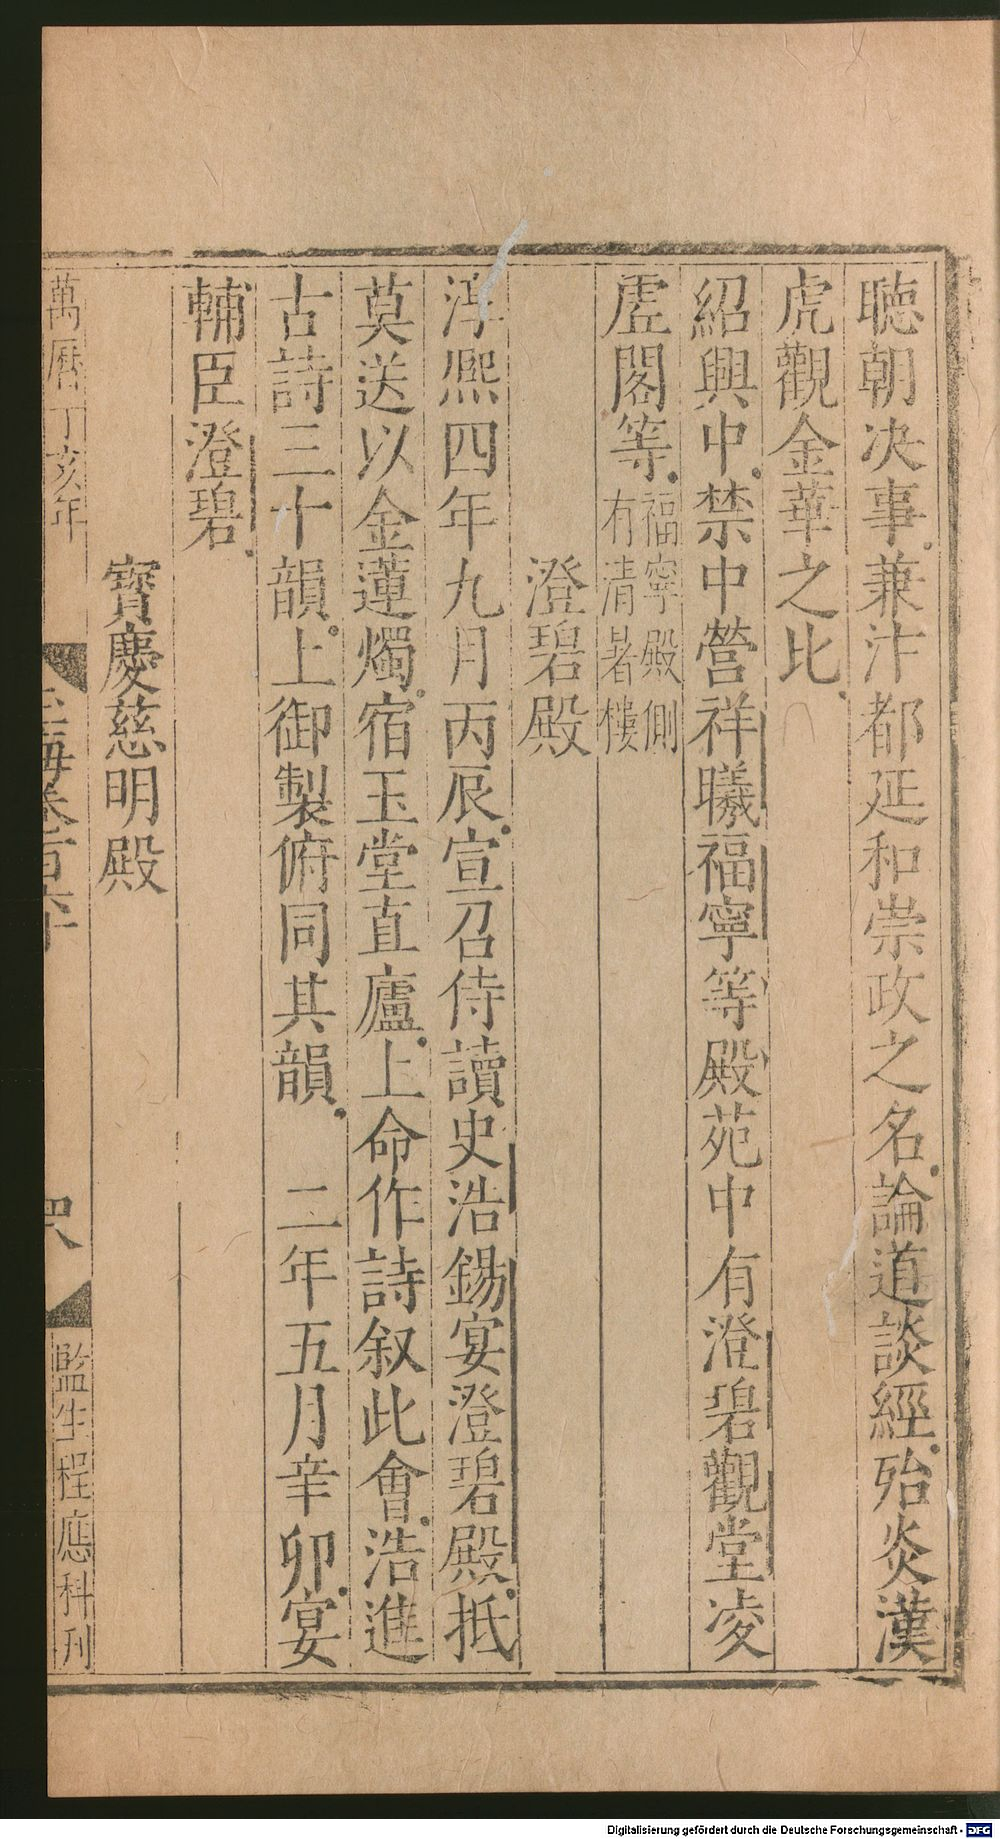 聴朝决事兼汴都延和崇政之名論道談經殆炎漢
虎觀金華之比
紹興中禁中營祥曦福寧等殿苑中有澄碧觀堂凌
虗閣等福寧殿側
有清暑樓
澄碧殿
淳熙四年九月丙辰宣召侍讀史浩錫宴澄碧殿抵
莫送以金蓮燭宿玉堂直廬上命作詩叙此會浩進
古詩三十韻上御製俯同其韻 二年五月辛卯宴
輔臣澄碧
寳慶慈明殿
萬曆丁亥年
玉海卷百六十
監生程應科刋
Digitalisierung gefördert durch die Deutsche Forschungsgemeinschaft - DFG